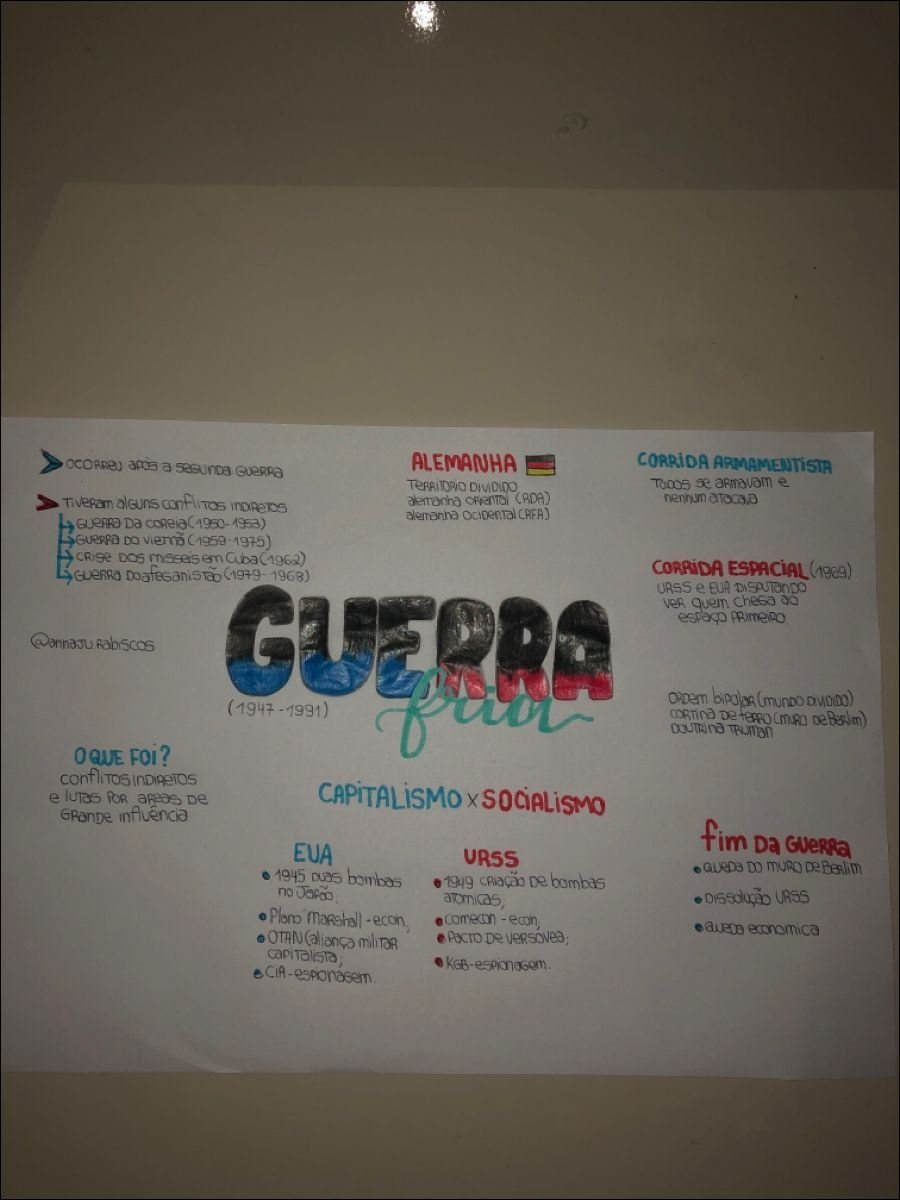 OCORREU APÓS A SEGUNDA GUERRA
Tiveram alguns conflitos indiretos
GUERRA DA COREIA (1950-1953)
GUERRA DO VIETNÃ (1959-1975)
CRISE DOS MISSEIS EM CUBA (1962)
GUERRA DO AFEGANISTÃO (1979-1968)
@annaju.rabiscos
ALEMANHA
TERRITORIO DIVIDIDO
alemanha ORIENTAL (RDA)
alemanha OCIDENTAL (RFA)
CORRIDA ARMAMENTISTA
TODOS SE ARMAVAM E
NENHUM ATACAVA
CORRIDA ESPACIAL (1969)
URSS E EUA DISPUTANDO
VER QUEM CHEGA AO
ESPAÇO PRIMEIRO.
GUERRA
fria
(1947-1991)
ORDEM BIPOLAR (MUNDO DIVIDIDO)
CORTINA DE FERRO (MURO DE BERLIM)
DOUTRINA TRUMAN
O QUE FOI?
CONFLITOS INDIRETOS
E LUTAS POR AREAS DE
GRANDE INFLUÊNCIA
CAPITALISMO X SOCIALISMO
EUA
1945 DUAS BOMBAS
NO JAPÃO;
Plano Marshall - econ;
OTAN (aliança militar
capitalista;
CIA - espionagem.
URSS
1949 CRIAÇÃO DE BOMBAS
ATOMICAS;
COMECON - ECON;
PACTO DE VERSOVEA;
KGB - ESPIONAGEM.
fim DA GUERRA
QUEDA DO MURO DE BERLIM
DISSOLUÇÃO URSS
QUEDA ECONOMICA